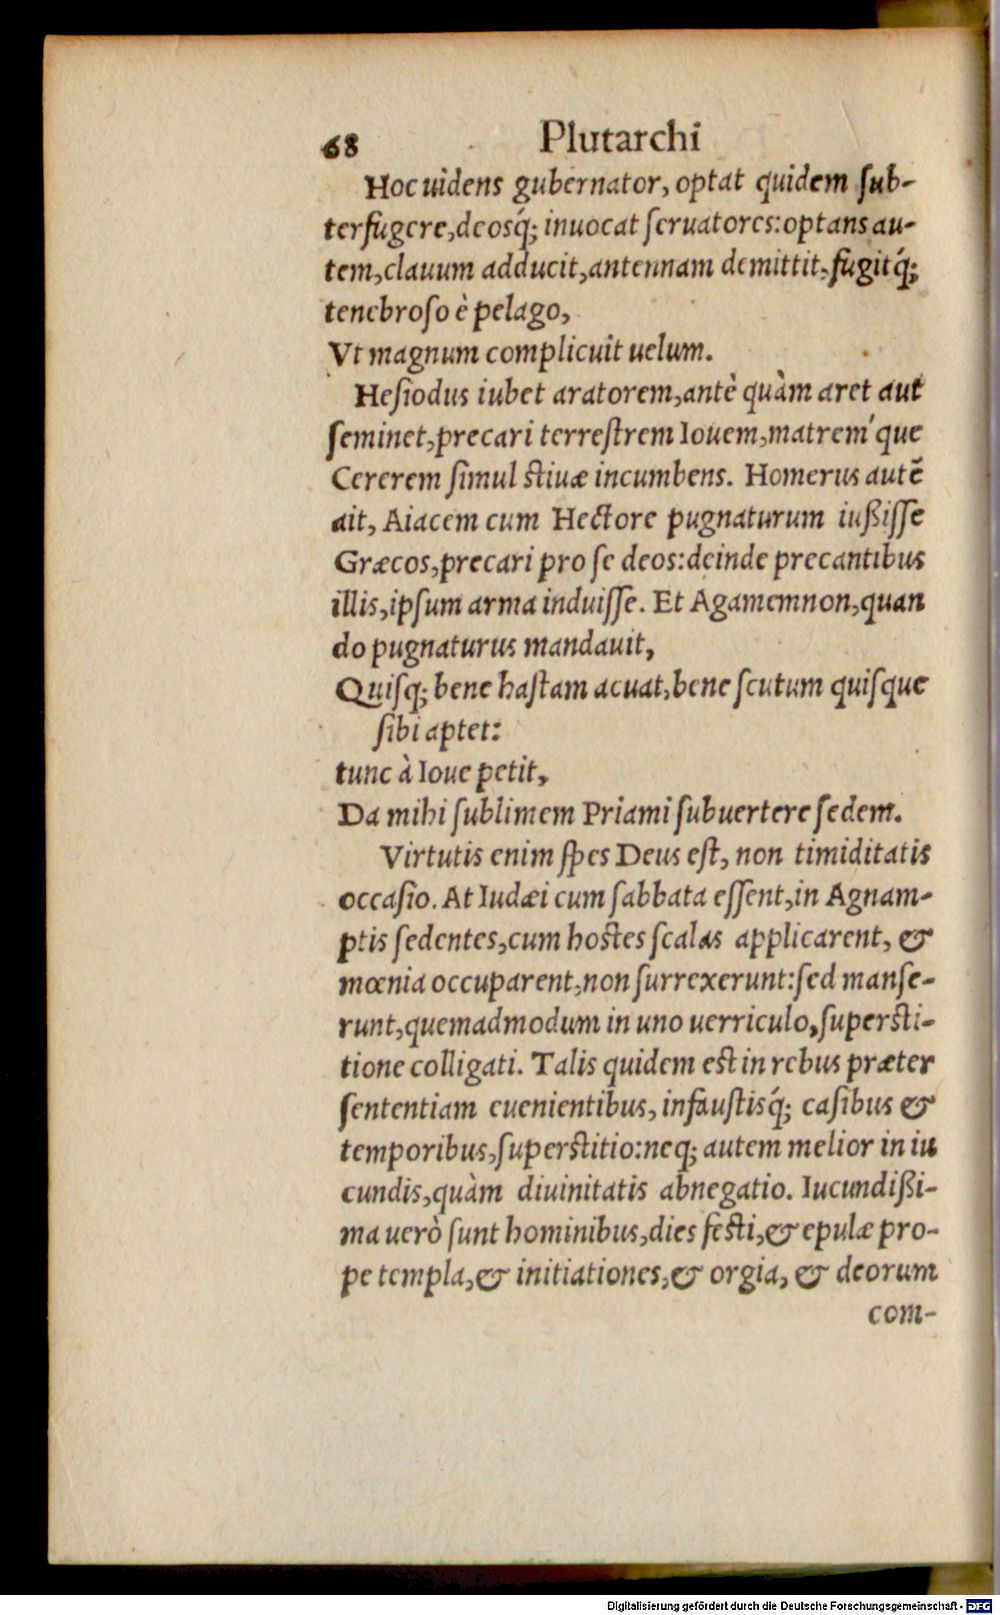 68 Plutarchi
Hoc uidens gubernator, optat quidem ſub-
terfugere, deosq́; inuocat ſeruatores: optans au-
tem, clauum adducit, antennam demittit, fugitq́;
tenebroſo è pelago,
Vt magnum complicuit uelum.
Heſiodus iubet aratorem, antè quàm aret aut
ſeminet, precari terreſtrem Iouem, matreḿque
Cererem ſimul ſtiuæ incumbens. Homerus autẽ
ait, Aiacem cum Hectore pugnaturum iußiſſe
Græcos, precari pro ſe deos: deinde precantibus
illis, ipſum arma induiſſe. Et Agamemnon, quan
do pugnaturus mandauit,
Quiſq; bene haſtam acuat, bene ſcutum quiſque
ſibi aptet:
tunc à Ioue petit,
Da mihi ſublimem Priami ſubuertere ſedem.
Virtutis enim ſpes Deus eſt, non timiditatis
occaſio. At Iudæi cum ſabbata eſſent, in Agnam-
ptis ſedentes, cum hoſtes ſcalas applicarent, &
mœnia occuparent, non ſurrexerunt: ſed manſe-
runt, quemadmodum in uno uerriculo, ſuperſti-
tione colligati. Talis quidem eſt in rebus præter
ſententiam euenientibus, infauſtisq́; caſibus &
temporibus, ſuperſtitio: neq; autem melior in iu
cundis, quàm diuinitatis abnegatio. Iucundißi-
ma uerò ſunt hominibus, dies feſti, & epulæ pro-
pe templa, & initiationes, & orgia, & deorum
com-
Digitalisierung gefördert durch die Deutsche Forschungsgemeinschaft - DFG